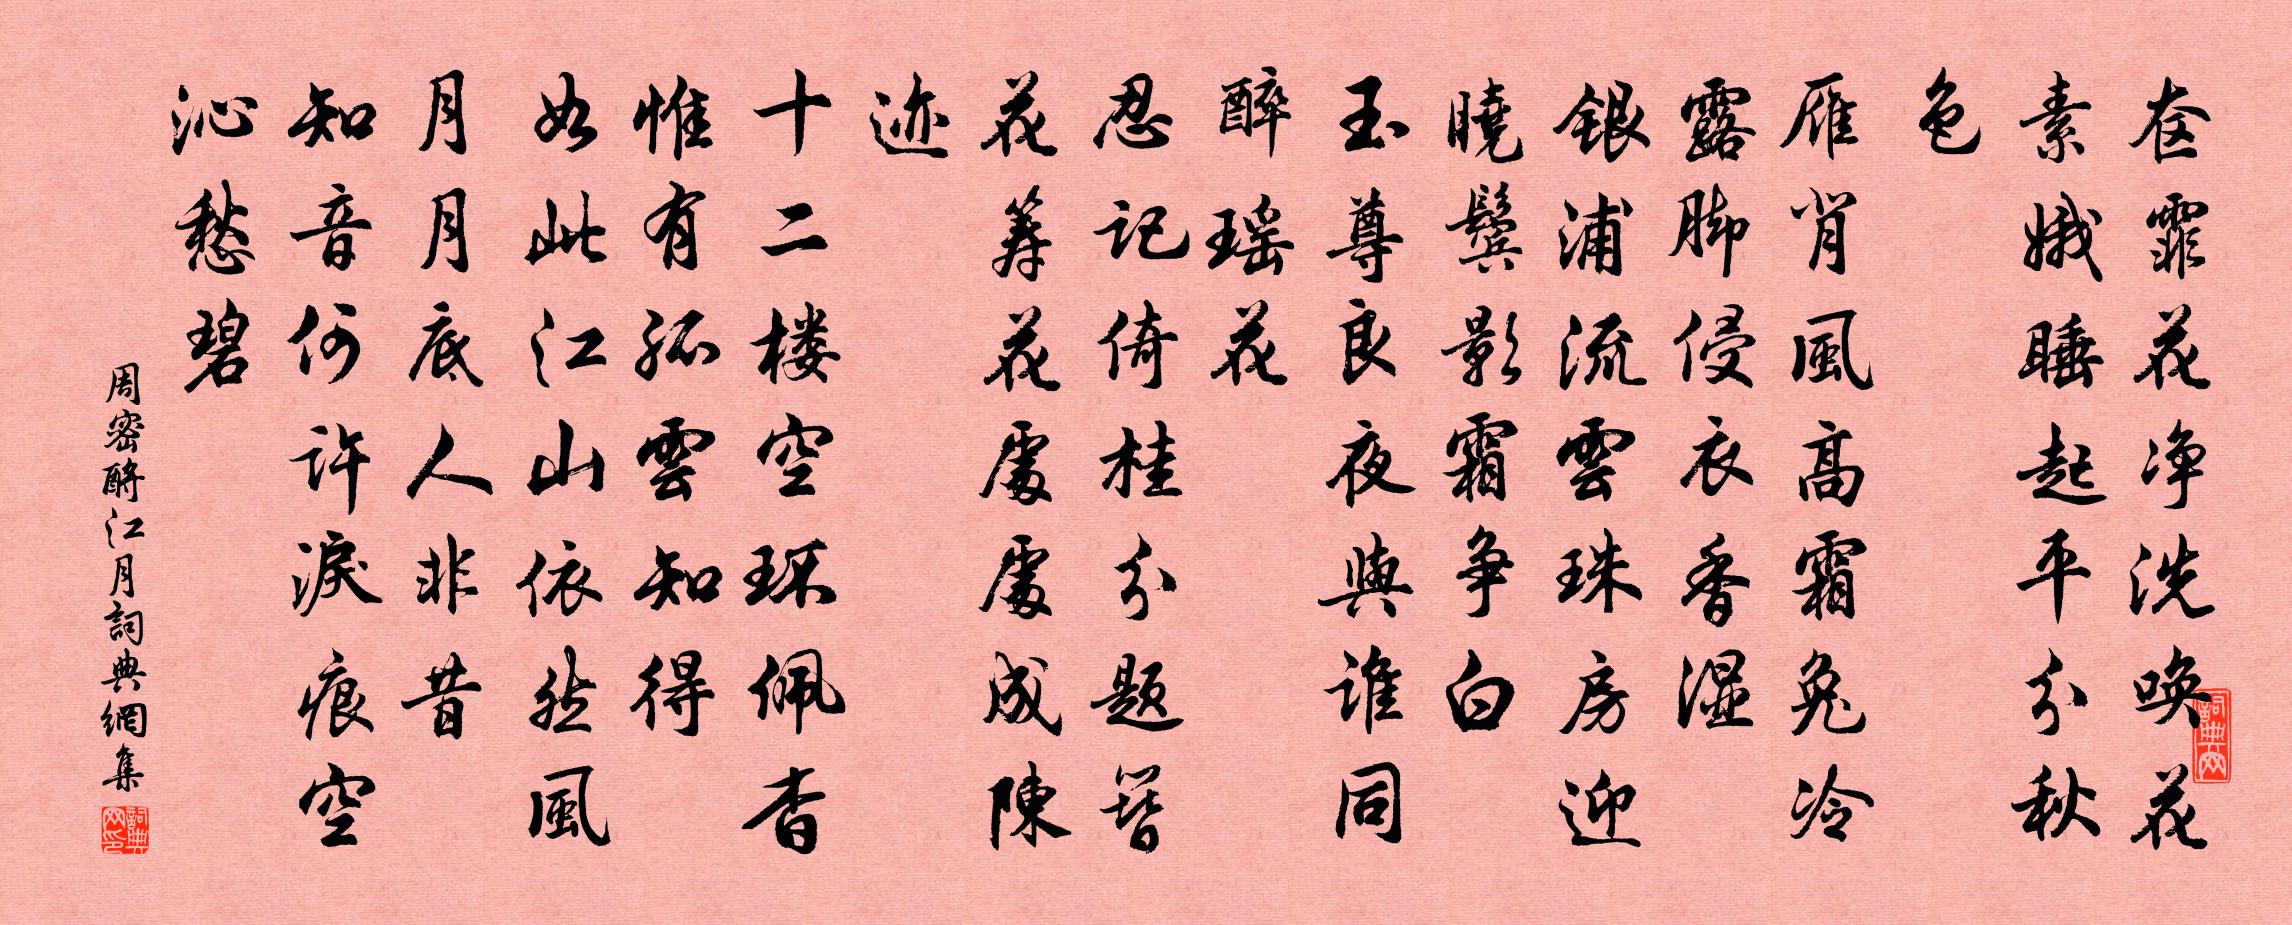 奁霏花净洗唤花
素娥睡起平分秋
色
雁肖風高霜兔冷
露脚侵衣香湿
銀浦流雲珠房迎
曉鬓影霜争白
玉尊良夜與谁同
醉瑶花
忍记倚桂分题簪
花筹花處處成陳
迹
十二楼空环佩杳
惟有孤雲知得
如此江山依然風
月月底人非昔
知音何许淚痕空
沁愁碧
周密酹江月詞典網集
詞典网
詞典网印